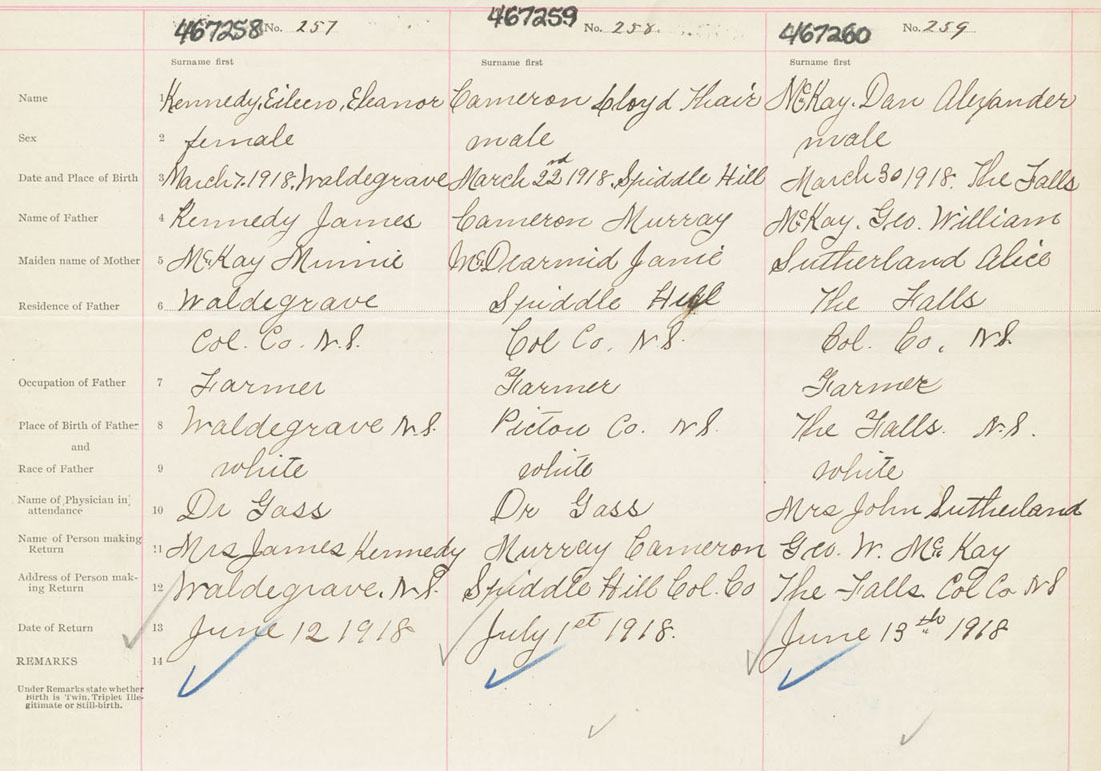 467258 No. 257 467259 No. 258. 467260 No. 259
Surname first Surname first Surname first
Name 1 Kennedy, Eileen, Eleanor Cameron Lloyd Thair McKay. Dan Alexander
Sex 2 female male male
Date and Place of Birth 3 March 7. 1918. Waldegrave March 22nd 1918. Spiddle Hill March 30 1918. The Falls
Name of Father 4 Kennedy James Cameron Murray McKay. Geo. William
Maiden name of Mother 5 McKay Minnie McDearmid Janie Sutherland Alice
Residence of Father 6 Waldegrave Spiddle Hill The Falls
Col. Co. N.S. Col Co, N.S. Col. Co, N.S.
Occupation of Father 7 Farmer Farmer Farmer
Place of Birth of Father 8 Waldegrave N.S. Pictou Co. N.S. The Falls. N.S.
and
Race of Father 9 white white white
Name of Physician in
attendance 10 Dr Gass Dr Gass Mrs John Sutherland
Name of Person making
Return 11 Mrs James Kennedy Murray Cameron Geo. W. McKay
Address of Person mak-
ing Return 12 Waldegrave, N.S. Spiddle Hill Col. Co The Falls Col Co NS
Date of Return 13 June 12 1918 July 1st 1918. June 13th 1918
REMARKS 14
Under Remarks state whether
Birth is Twin, Triplet Ille-
gitimate or Still-birth.